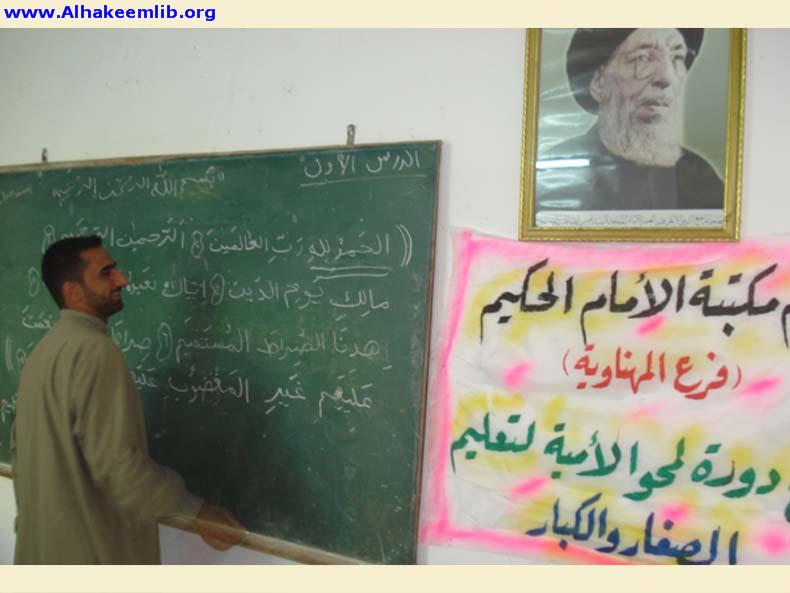 www.Alhakeemlib.org
الدرس الأول
بسم الله الرحمن الرحيم
((الحمدُ للهِ رَبِّ العالَمينَ الرَّحمنِ
مالِكِ يَومِ الدّينِ اِيّاكَ نَعبُدُ
اِهدِنَا الصِّراطَ المُستَقيمَ صِراطَ
عَلَيهِم غَيرِ المَغضُوبِ
مكتبة الإمام الحكيم
(فرع المهناوية)
دورة لمحو الأمية لتعليم
الصغار والكبار